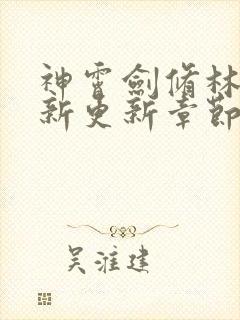 神雷劍脩林
新更新章節
吴淮建